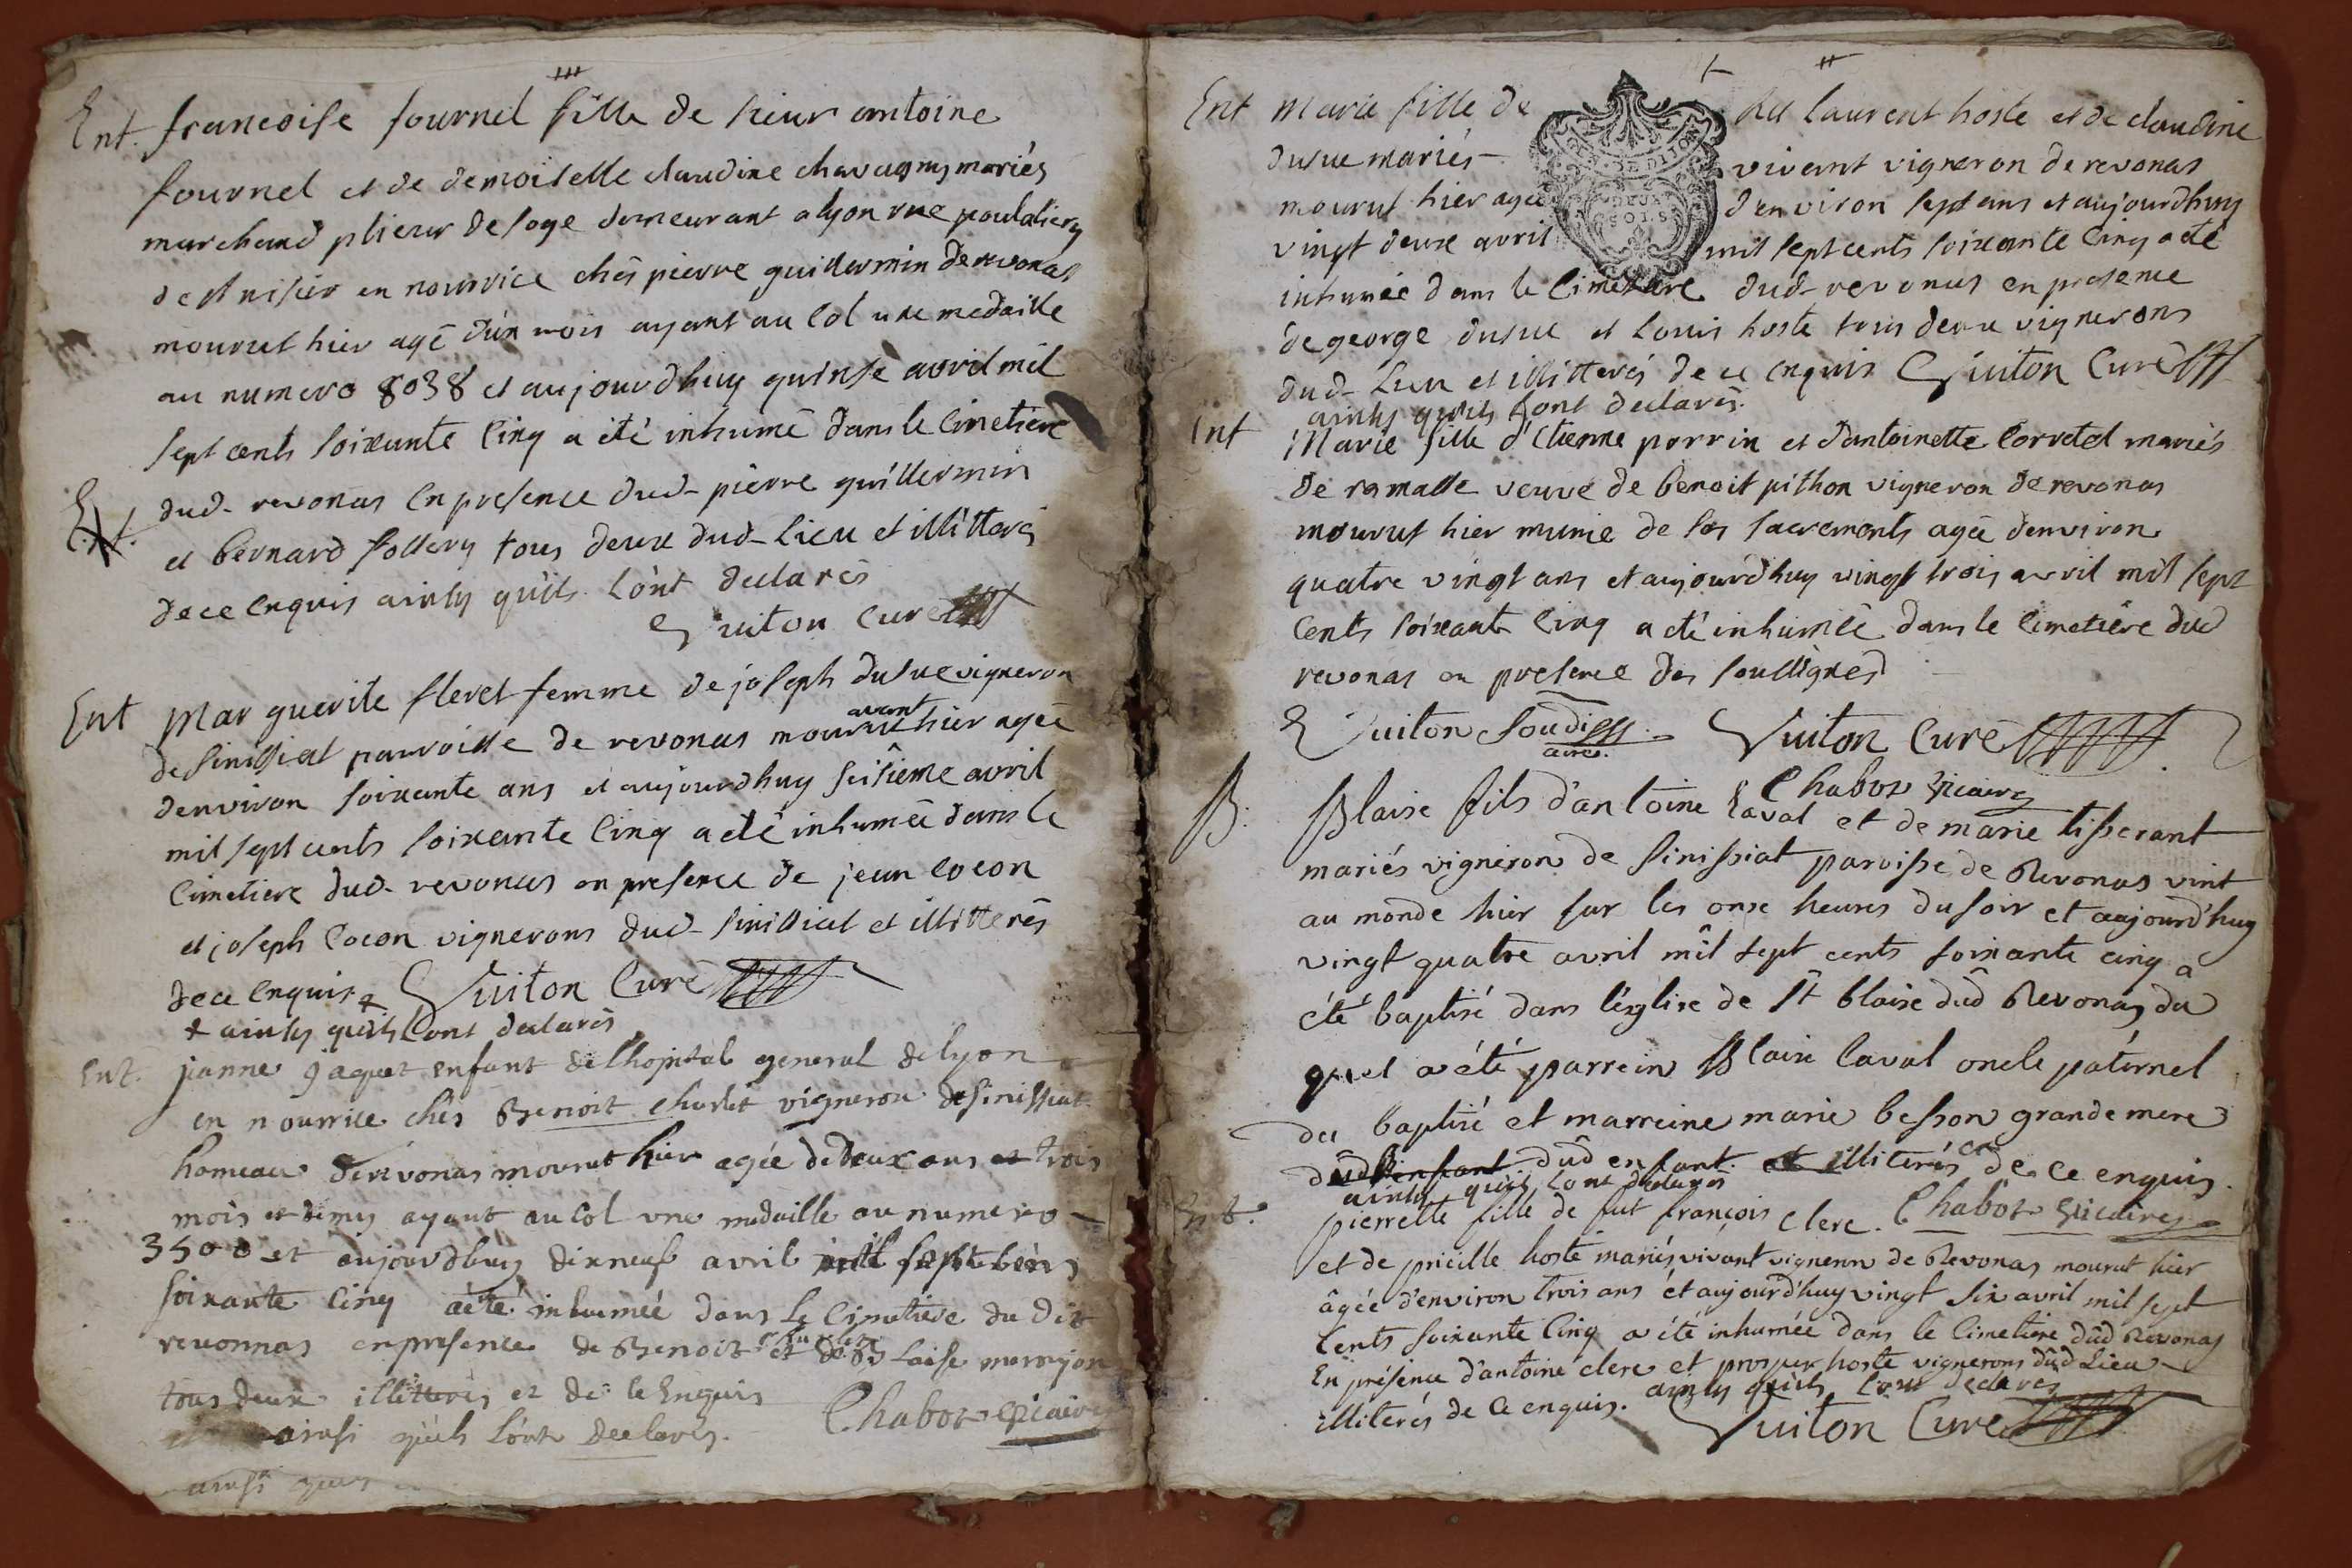 Ent. francoise fournel fille de sieur antoine
fournel et de demoiselle claudine chavagny mariés
marchand plieur de soye demeurant a lyon rue poulaliery
de st nisier en nourrice chés pierre guillermin de revonas
mourut hier agé d'un mois ayant au col une medaille
au numero 8038 et aujourdhuy quinse avril mil
sept cents soixante cinq a été inhumé dans le cimetiere
dud. revonas en presence dud. pierre guillermin
et bernard sollery tous deux dud. lieu et illitterés
de ce enquis ainsy qu'ils l'ont declarés
Guiton Curé
Ent Marguerite fleret femme de joseph dusue vigneron
de sinissiat parroisse de revonas mourut avant hier agée
d'environ soixante ans et aujourdhuy seisieme avril
mil sept cents soixante cinq a eté inhumée dans le
cimetiere dud. revonas en presence de jean cocon
et joseph cocon vignerons dud. sinissiat et illitterés
de ce enquis + Guiton Curé
+ ainsy qu'ils l'ont declarés
Ent. janne jaquet enfant de l'hopital general de lyon
en nourrice chés Benoit charlet vigneron de sinissiat
hameau de revonas mourut hier agée de deux ans et trois
mois et demy ayant au col une medaille au numero
3500 et aujourdhuy dixneuf avril mil sept cens
soixante cinq a été inhumée dans le cimetiere du dit
revonnas en presence de Benoit charlet et de
tous deux illitterés et de ce enquis
ainsi qu'ils l'ont declarés. Chabot vicaire
ainsi qu
Ent Marie fille de feu laurent hoste et de claudine
dusue mariés vivant vigneron de revonas
mourut hier agée d'environ sept ans et aujourdhuy
vingt deux avril mil sept cents soixante cinq a eté
inhumée dans le cimetiere dud. revonas en presence
de george dusue et Louis hoste tous deux vignerons
dud. lieu et illitterés de ce enquis Guiton Curé
ainsy qu'ils l'ont declarés.
Ent Marie fille d'etienne perrin et d'antoinette corretel mariés
de ramasse veuve de benoit pithon vigneron de revonas
mourut hier munie de ses sacrements agée d'environ
quatre vingt ans et aujourdhuy vingt trois avril mil sept
cents soixante cinq a eté inhumée dans le cimetiere dud
revonas en presence des soussignés
Guiton soudiacre. Guiton Curé
Chabot vicaire
B. Blaise fils d'antoine laval et de marie tisserant
mariés vigneron de sinissiat paroisse de Revonas vint
au monde hier sur les onze heures du soir et aujourd'huy
vingt quatre avril mil sept cents soixante cinq a
été baptisé dans l'église de St blaise dud Revonas du
quel a été parrein Blaise laval oncle paternel
du baptisé et marreine marie besson grande mere
dud enfant dud enfant et illiterés de ce enquis.
ainsy qu'ils l'ont declarés
Chabot vicaire
Ent. pierrette fille de fut françois clerc
et de pricille hoste mariés vivant vigneron de Revonas mourut hier
âgée d'environ trois ans et aujourd'huy vingt six avril mil sept
cents soixante cinq a été inhumée dans le cimetiere dud Revonas
En présence d'antoine clerc et prosper hoste vignerons dud Lieu
illiterés de ce enquis. ainsy qu'ils l'ont declarés
Guiton Curé